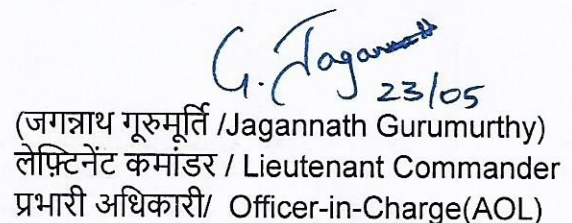 G. Jagannath
23/05
(जगन्नाथ गूरुमूर्ति /Jagannath Gurumurthy)
लेफ़्टिनेंट कमांडर / Lieutenant Commander
प्रभारी अधिकारी/ Officer-in-Charge(AOL)